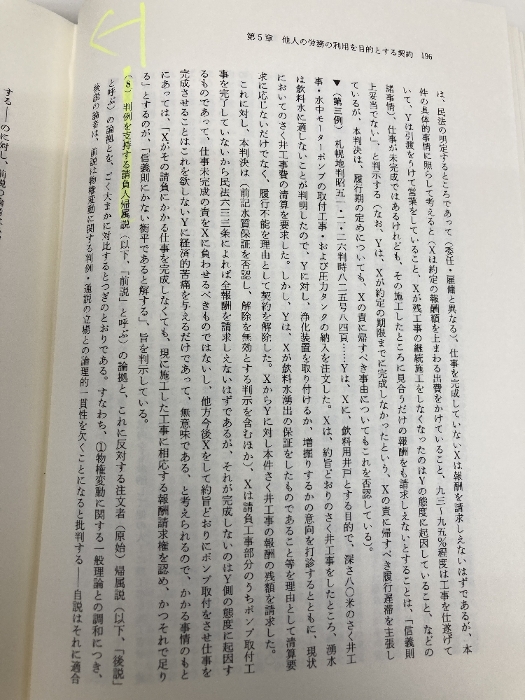 第５章　他人の労務の利用を目的とする契約　196
は、民法の判定するところであって（委任・雇傭と異なる）、仕事を完成していないＸは報酬を請求しえないはずであるが、本
件の具体的事情に照らして考えると（Ｘは約定の報酬額を上まわる出費をかけていること、九三〜九五％程度は工事を仕遂げて
いて、Ｙは引渡をうけて営業をしていること、Ｘが残工事の継続施工をしなくなったのはＹの態度に起因していること、などの
諸事情）、仕事が未完成ではあるけれども、その施工したところに見合うだけの報酬をも請求しえないとすることは、「信義則
上妥当でない」、と判示する（なお、Ｙは、Ｘが約定の期限までに完成しなかったという、Ｘの責に帰すべき履行遅滞を主張し
ているが、本判決は、履行期の定めについても、Ｘの責に帰すべき事由についてもこれを否認している）。
▼（第三例）　札幌地判昭五一・二・二六判時八二五号八四頁……Ｙは、Ｘに、飲料用井戸とする目的で、深さ八〇米のさく井工
事・水中モーターポンプの取付工事・および圧力タンクの納入を注文した。Ｘは、約旨どおりのさく井工事をしたところ、湧水
は飲料水に適しないことが判明したので、Ｙに対し、浄化装置を取り付けるか、増掘りするかの意向を打診するとともに、現状
においてのさく井工事費の清算を要求した。しかし、Ｙは、Ｘが飲料水湧出の保証をしたものであること等を理由として清算要
求に応じないだけでなく、履行不能を理由として契約を解除した。ＸからＹに対し本件さく井工事の報酬の残額を請求した。
これに対し、本判決は（前記水質保証を否認し、解除を無効とする判示を含むほか）、Ｘは請負工事部分のうちポンプ取付工
事を完了していないから民法六三三条によれば全報酬を請求しえないはずであるが、それが完成しないのはＹ側の態度に起因す
るものであって、仕事未完成の責をＸに負わせるべきものではないし、他方今後Ｘをして約旨どおりにポンプ取付をさせ仕事を
完成させることはこれを欲しないＹに経済的苦痛を与えるだけであって、無意味である、と考えられるので、かかる事情のもと
にあっては、「Ｘがその請負にかかる仕事を完成しなくても、現に施工した工事に相応する報酬請求権を認め、かつそれで足り
る」とするのが、「信義則にかない衡平であると解する」、旨を判示している。
（8）　判例を支持する請負人帰属説（以下、「前説」と呼ぶ）の論拠と、これに反対する注文者（原始）帰属説（以下、「後説」
と呼ぶ）の論拠とを、ごく大まかに対比するとつぎのとおりである。すなわち、①物権変動に関する一般理論との調和につき、
後説の論者は、前説は物権変動に関する判例・通説の立場との論理的一貫性を欠くことになると批判する——自説はそれに適合
する——のに対し、前説の